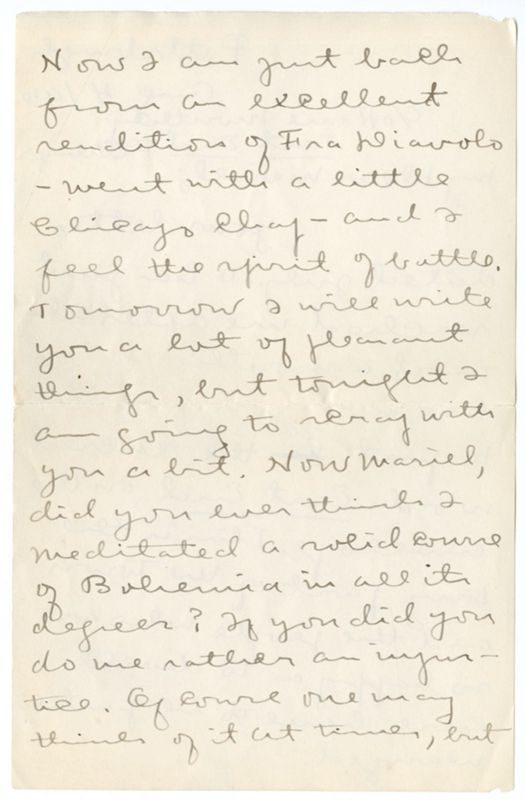 Now I am just back
from an excellent
rendition of Fra Diavolo
- went with a little
Chicago Chap - and I
feel the spirit of battle.
Tomorrow I will write
you a lot of pleasant
things, but tonight I
am going to scrap with
you a bit. Now Mariel,
did you ever think I
meditated a solid course
of Bohemia in all its
degrees? If you did you
do me rather an injus-
tice. Of course one may
think of it at times, but